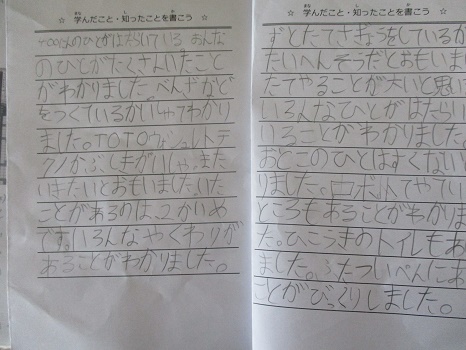 ☆ 学んだこと・知ったことを書こう ☆
400人のひとがはたらいている。おんな
のひとがたくさんいたこと
がわかりました。べんざなど
をつくているかいしゃてわかり
ました。TOTOウォシュレットテ
クノかぶしきがいしゃ、また
いきたいとおもいました、いた
ことがあるのは、2かいめ
です。いろんなやくわりが
あることがわかりました。
☆ 学んだこと・知ったことを書こう ☆
ずとたてさぎょうをしているか
たいへんそうだとおもいま
たてやることが大いと思い
いろんなひとがはたらい
いることがわかりました。
おとこのひとはすくない
りました。ロボットてやてい
ところもあることがわかりま
た。ひこうきのトイレもあ
ました。ふたついぺんにお
ことがびっくりしました。